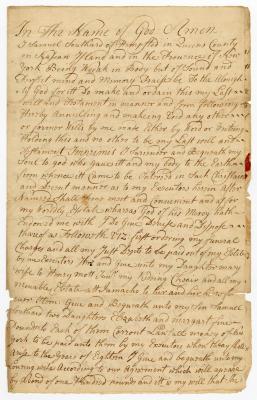 In The Name of God Amen
I Samuel Southard of Hempsted in Queens County
in Nassau Island and in the Province of New
York Being Weyak in body but of Sound and
mind and Memory Praise be To the
of God for itt Do make and ordain this my Last
will and Testament in manner and form following
Hereby Annulling and making Void any other
or former Wills by me made Either by Word or Writing
Holding this and no other to be my Last will and
Testament I surrender and bequeath my
Soul to god who Gave itt and my body to the Earth
from whence itt Came to be Interred in Such Christian
and Decent manner as to my Executors herein after
Named Shall Seem most and convenient and as for
my worldly Estate whareas God of his Mercy hath
me with I Do Give Devise and Dispose
thareof as Followeth viz first ordring my funeral
Charges and all my Just Debts to be paid out of my Estate
by me Executors I give unto my Daughter mary
wife to Henry mott my Riding Chear and all my
movable Estate att Jamaca to her and her
ever Item Give and Bequath unto my Son Samuel
Southard two Daughters Elizabeth and margat five
Pounds to Each of them Corrent Lawfull money of New
york to be paid unto them by my Executors when thay Shall
arive to the Years of Eighteen I Give and bequath unto my
Loving wife According to our Agreement which will appear
by A bond of one Hundred Pounds and itt is my will that She